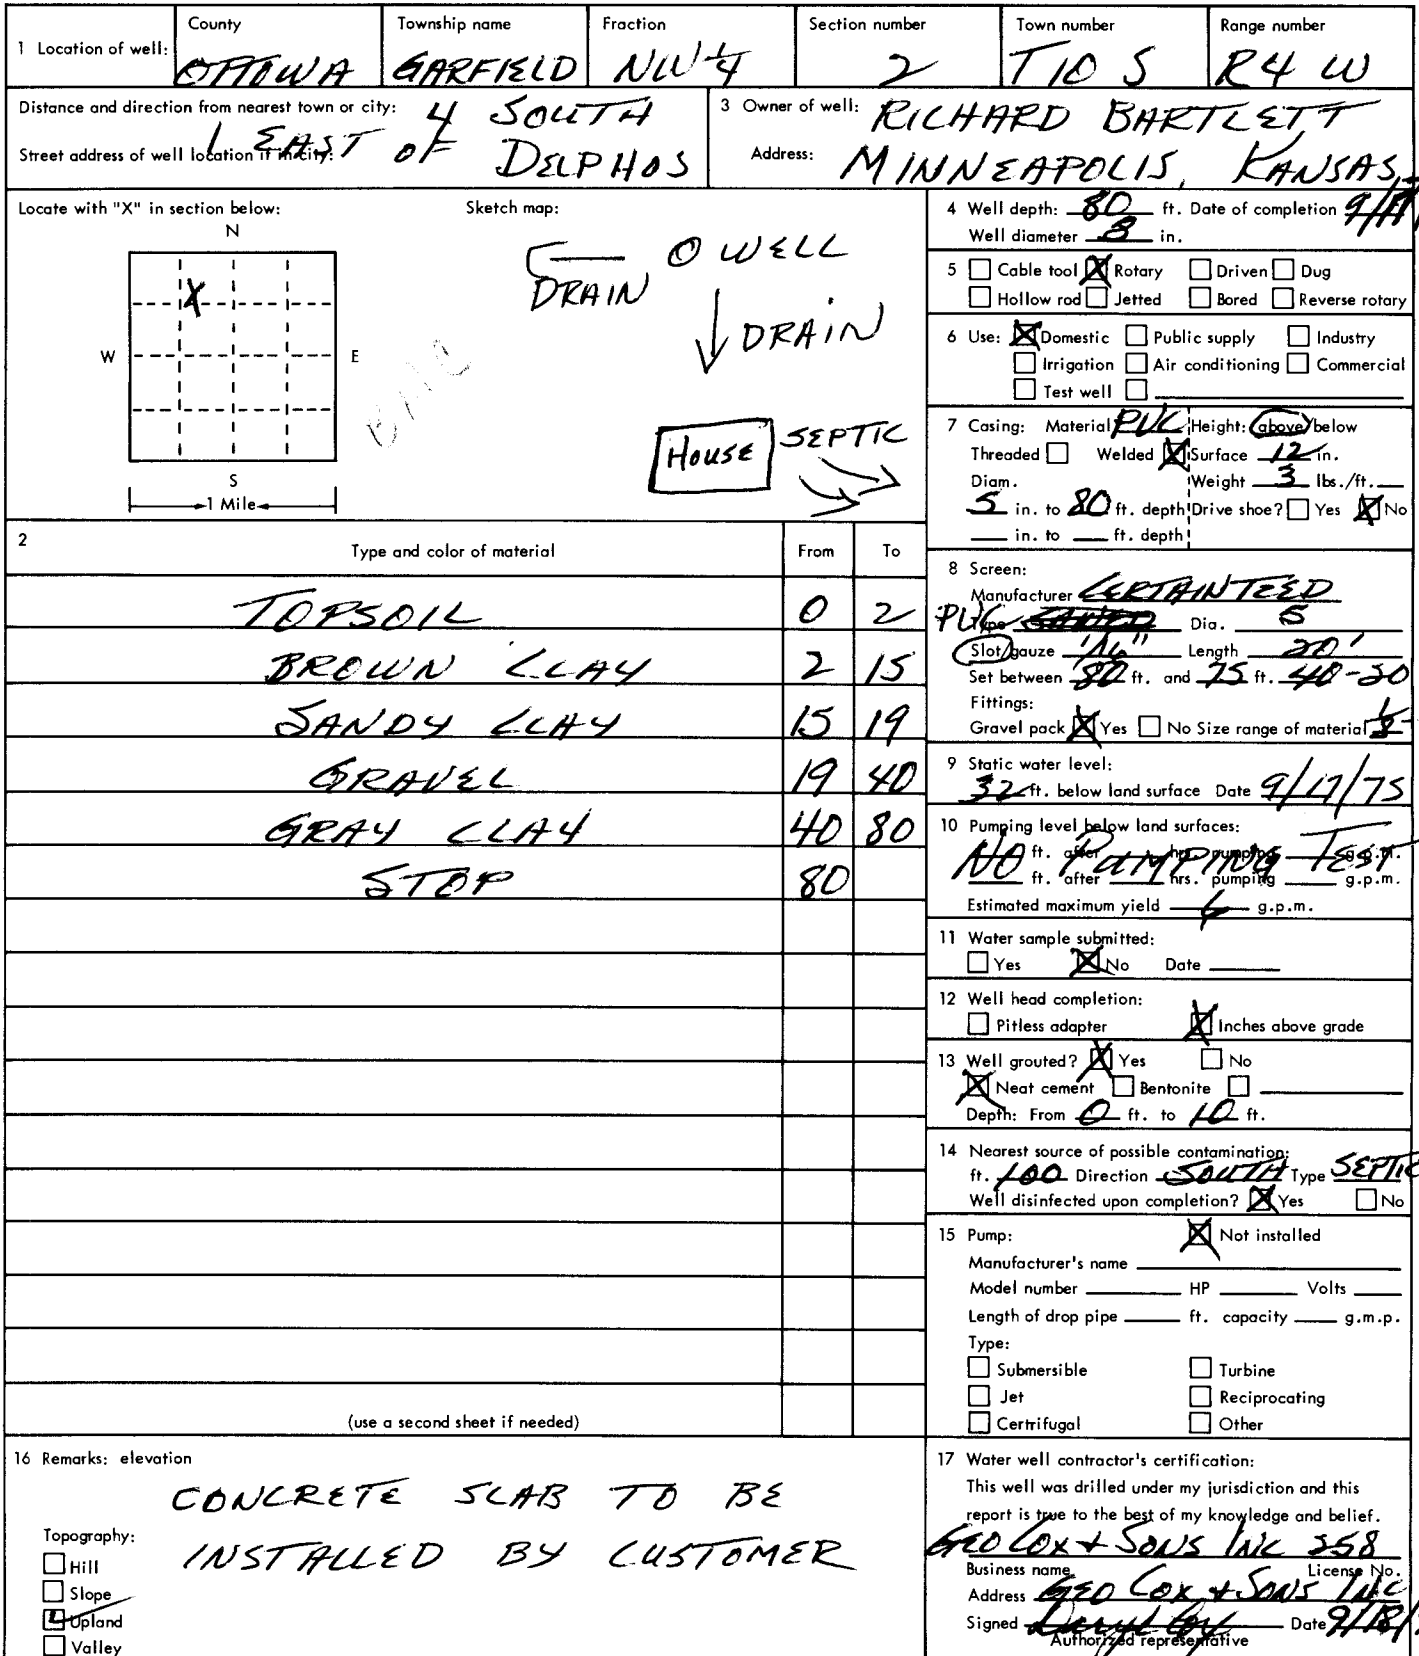 1 Location of well: County OTTOWA Township name GARFIELD Fraction NW 1/4 Section number 2 Town number T10 S Range number R4 W
Distance and direction from nearest town or city: 4 SOUTH
1 EAST OF DELPHOS
Street address of well location if in city:
3 Owner of well: RICHARD BARTLETT
Address: MINNEAPOLIS, KANSAS
Locate with "X" in section below:
N
X
W E
S
1 Mile
Sketch map:
O WELL
DRAIN
DRAIN
HOUSE SEPTIC
2 Type and color of material From To
TOPSOIL 0 2
BROWN CLAY 2 15
SANDY CLAY 15 19
GRAVEL 19 40
GRAY CLAY 40 80
STOP 80
(use a second sheet if needed)
4 Well depth: 80 ft. Date of completion
Well diameter 8 in.
5 Cable tool X Rotary Driven Dug
Hollow rod Jetted Bored Reverse rotary
6 Use: X Domestic Public supply Industry
Irrigation Air conditioning Commercial
Test well
7 Casing: Material PVC Height: above/below
Threaded Welded X Surface 12 in.
Diam. Weight 3 lbs./ft.
5 in. to 80 ft. depth Drive shoe? Yes X No
in. to ft. depth
8 Screen:
Manufacturer CERTAINTEED
Type PVC Dia. 5
Slot/gauze 1/16" Length 20'
Set between 80 ft. and 75 ft. 40-20
Fittings:
Gravel pack X Yes No Size range of material
9 Static water level:
32 ft. below land surface Date 9/17/75
10 Pumping level below land surfaces:
NO PUMPING TEST
ft. after hrs. pumping g.p.m.
ft. after hrs. pumping g.p.m.
Estimated maximum yield 6 g.p.m.
11 Water sample submitted:
Yes X No Date
12 Well head completion:
Pitless adapter X Inches above grade
13 Well grouted? X Yes No
X Neat cement Bentonite
Depth: From 0 ft. to 10 ft.
14 Nearest source of possible contamination:
ft. 100 Direction SOUTH Type SEPTIC
Well disinfected upon completion? X Yes No
15 Pump: X Not installed
Manufacturer's name
Model number HP Volts
Length of drop pipe ft. capacity g.m.p.
Type:
Submersible Turbine
Jet Reciprocating
Certrifugal Other
16 Remarks: elevation
CONCRETE SLAB TO BE
INSTALLED BY CUSTOMER
Topography:
Hill
Slope
Upland
Valley
17 Water well contractor's certification:
This well was drilled under my jurisdiction and this
report is true to the best of my knowledge and belief.
GEO COX + SONS INC 258
Business name License No.
Address GEO COX + SONS INC
Signed Daryl Cox Date 9/18/
Authorized representative